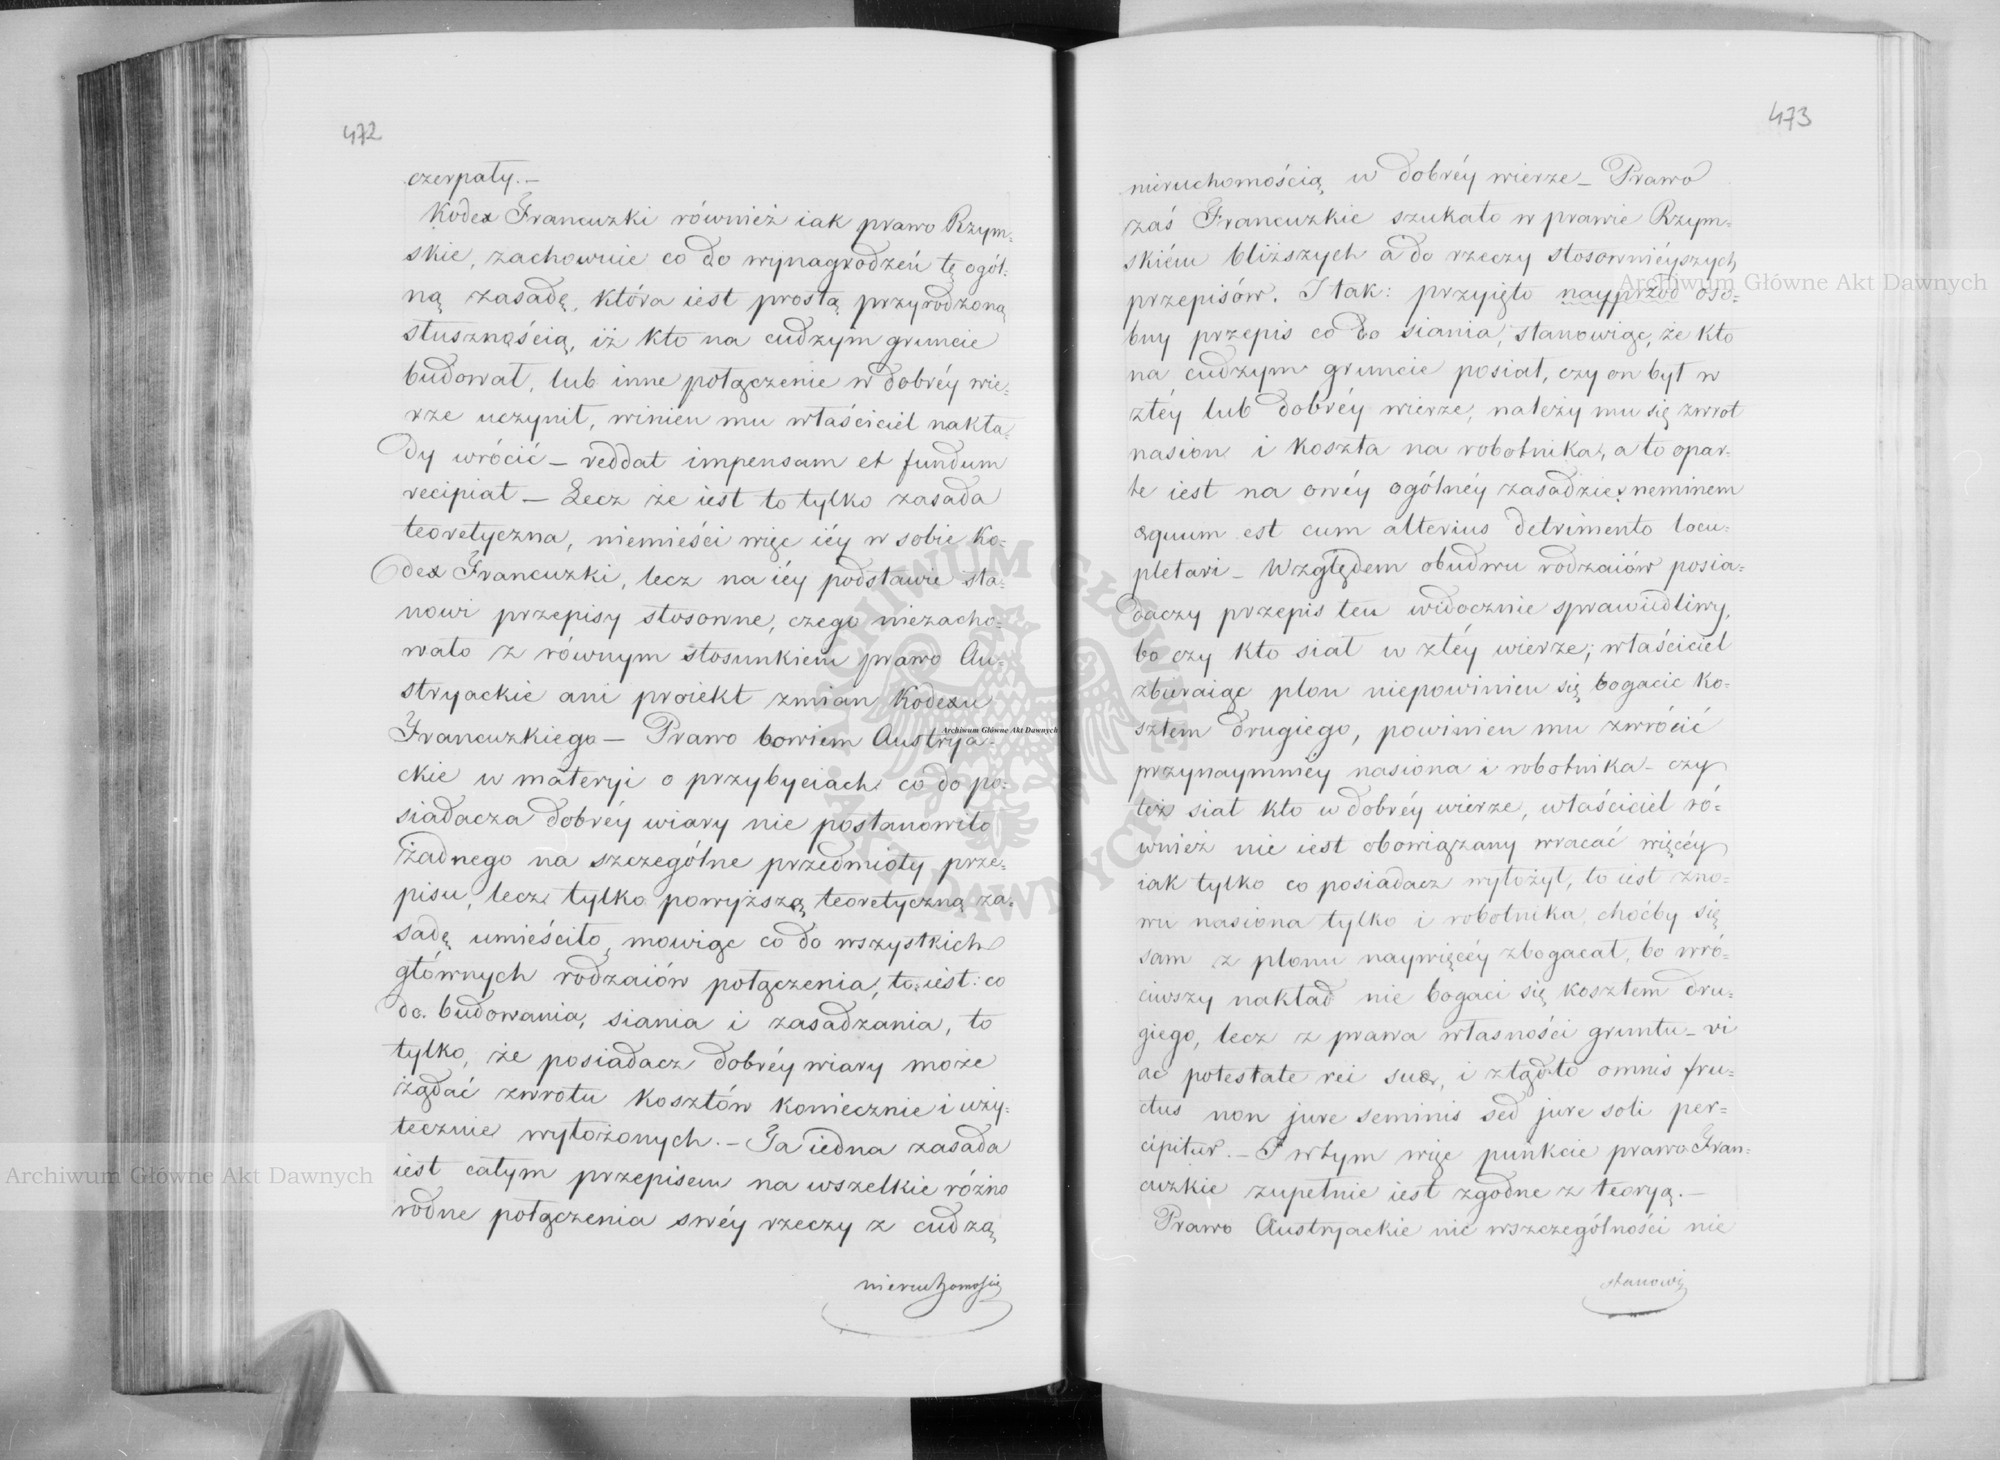 472
czerpały.—
Kodex Francuzki również iak prawo Rzym=
skie, zachowuie co do wynagrodzeń tę ogól=
ną zasadę, która iest prostą przyrodzoną
słusznością, iż kto na cudzym gruncie
budował, lub inne połączenie w dobréy wie=
rze uczynił, winien mu właściciel nakła=
dy wrócić — reddat impensam et fundum
recipiat — Lecz że iest to tylko zasada
teoretyczna, niemieści więc iéy w sobie Ko=
dex Francuzki, lecz na iéy podstawie sta=
nowi przepisy stosowne, czego niezacho=
wało z równym stosunkiem prawo Au=
stryackie ani proiekt zmian Kodexu
Francuzkiego — Prawo bowiem Austrya=
ckie w materyi o przybyciach co do po=
siadacza dobréy wiary nie postanowiło
żadnego na szczególne przedmioty prze=
pisu, lecz tylko powyższą teoretyczną za=
sadę umieściło, mowiąc co do wszystkich
głównych rodzaiów połączenia, to iest: co
do budowania, siania i zasadzania, to
tylko, że posiadacz dobréy wiary może
żądać zwrotu kosztów koniecznie i uży=
tecznie wyłożonych. — Ta iedna zasada
iest całym przepisem na wszelkie różno
rodne połączenia swéy rzeczy z cudzą
nieruchomością
473
nieruchomością w dobréy wierze — Prawo
zaś Francuzkie szukało w prawie Rzym=
skiém bliższych a do rzeczy stosownieyszych
przepisów. I tak: przyięto nayprzód oso=
bny przepis co do siania, stanowiąc, że kto
na cudzym gruncie posiał, czy on był w
złéy lub dobréy wierze, należy mu się zwrot
nasion i koszta na robotnika, a to opar=
te iest na owéy ogólnéy zasadzie: neminem
æquum est cum alterius detrimento locu=
pletari — Względem obudwu rodzaiów posia=
daczy przepis ten widocznie sprawiedliwy,
bo czy kto siał w złéy wierze; właściciel
zbieraiąc plon niepowinien się bogacić ko=
sztem drugiego, powinien mu zwrócić
przynaymniéy nasiona i robotnika — czy
też siał kto w dobréy wierze, właściciel ró=
wnież nie iest obowiązany wracać więcéy
iak tylko co posiadacz wyłożył, to iest zno=
wu nasiona tylko i robotnika, choćby się
sam z plonu naywięcéy zbogacał, bo wró=
ciwszy nakład nie bogaci się kosztem dru=
giego, lecz z prawa własności gruntu — vi
ac potestate rei suæ, i ztąd to omnis fru=
ctus non jure seminis sed jure soli per=
cipitur. — I w tym więc punkcie prawo Fran=
cuzkie zupełnie iest zgodne z teoryą. —
Prawo Austryackie nic wszczególności nie
stanowi
Archiwum Główne Akt Dawnych
Archiwum Główne Akt Dawnych
Archiwum Główne Akt Dawnych
ARCHIWUM GŁÓWNE AKT DAWNYCH